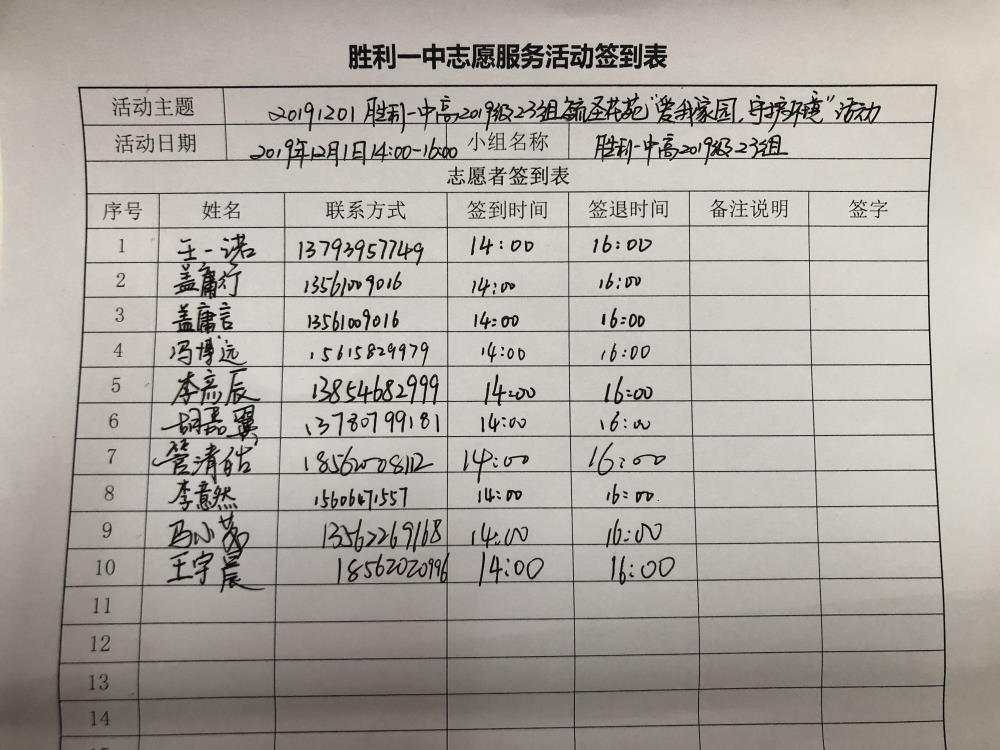 胜利一中志愿服务活动签到表
活动主题 20191201胜利一中高2019级23组毓圣花苑“爱我家园,守护环境”活动
活动日期 2019年12月1日14:00-16:00 小组名称 胜利一中高2019级23组
志愿者签到表
序号 姓名 联系方式 签到时间 签退时间 备注说明 签字
1 王一诺 13793957749 14:00 16:00
2 盖庸行 13561009016 14:00 16:00
3 盖庸言 13561009016 14:00 16:00
4 冯博远 15615829979 14:00 16:00
5 李彦辰 13854682999 14:00 16:00
6 胡嘉翼 13780799181 14:00 16:00
7 管清 18562008112 14:00 16:00
8 李意然 15606471557 14:00 16:00.
9 冯小 13562269168 14:00 16:00
10 王宇晨 18562020996 14:00 16:00
11
12
13
14